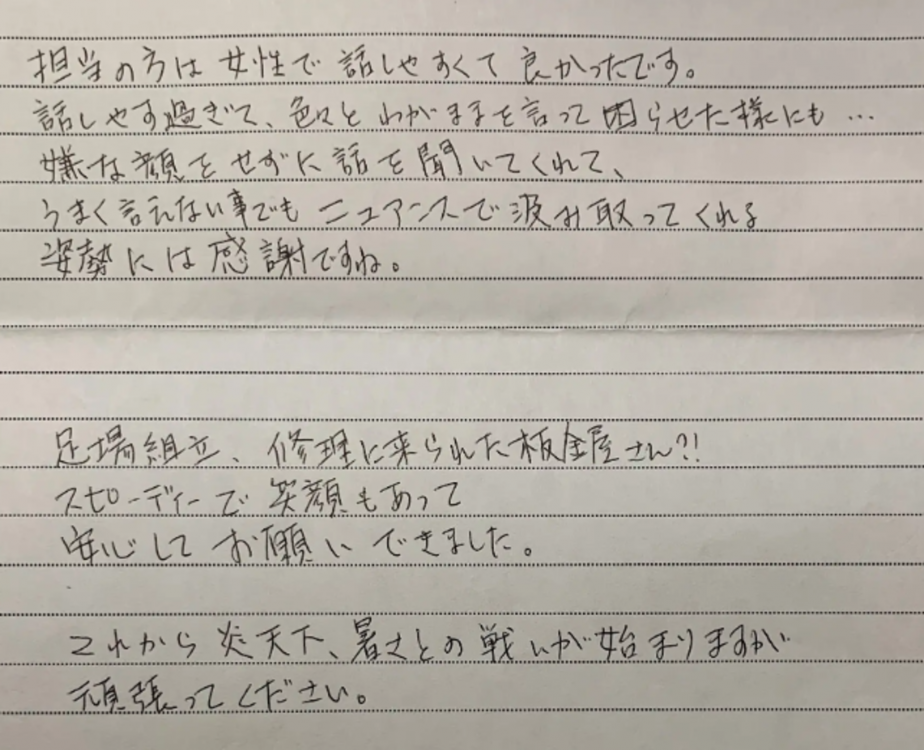 担当の方は女性で話しやすくて良かったです。
話しやす過ぎて、色々とわがままを言って困らせた様にも…
嫌な顔をせずに話を聞いてくれて、
うまく言えない事でもニュアンスで汲み取ってくれる
姿勢には感謝ですね。
足場組立、修理に来られた板金屋さん?!
スピーディーで笑顔もあって
安心してお願いできました。
これから炎天下、暑さとの戦いが始まりますが
頑張ってください。